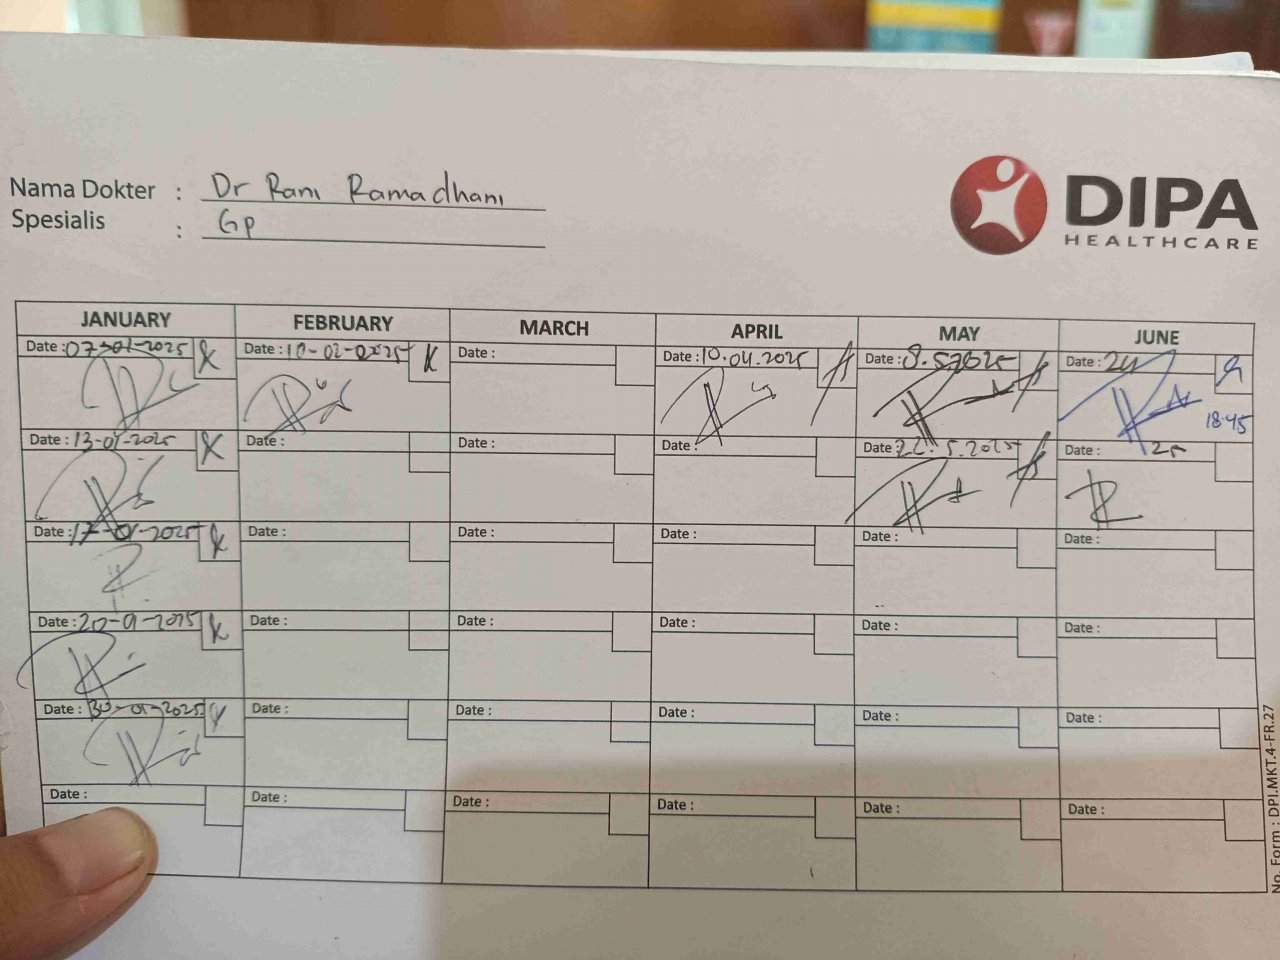 Nama Dokter : Dr Rani Ramadhani
Spesialis : Gp
DIPA
HEALTHCARE
JANUARY FEBRUARY MARCH APRIL MAY JUNE
Date : 07-01-2025 Date : 10-02-2025 Date : Date : 10.04.2025 Date : 8.5.2025 Date : 24
18.45
Date : 13-01-2025 Date : Date : Date : Date : 22.5.2025 Date : 25
Date : 17-01-2025 Date : Date : Date : Date : Date :
Date : 20-01-2025 Date : Date : Date : Date : Date :
Date : 30-01-2025 Date : Date : Date : Date : Date :
Date : Date : Date : Date : Date : Date :
No. Form : DPI.MKT.4-FR.27